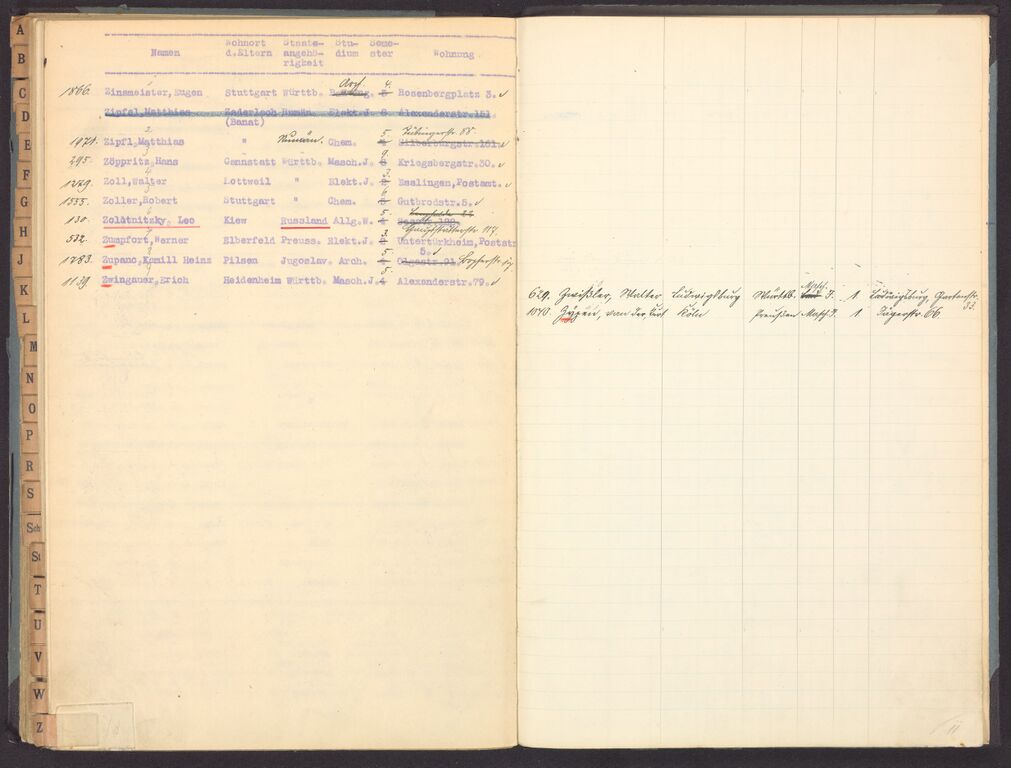 A
B
C
D
E
F
G
H
J
K
L
M
N
O
P
R
S
Sch
St
T
U
V
W
Z
Namen Wohnort d.Eltern Staats-angehö-rigkeit Stu-dium Seme-ster Wohnung
1866. Zinsmeister,Eugen Stuttgart Württb. Arch. 4. Rosenbergplatz 3.
Zipfel,Matthias Zaderlach Rumän. Elekt.J. 6 Alexanderstr.151
(Banat)
Tübingerstr. 88.
1971. Zipfl,Matthias " Rumän. Chem. 5. Silberburgstr.161.
295. Zöppritz,Hans Cannstatt Württb. Masch.J. 9. Kriegsbergstr.30.
1229. Zoll,Walter Rottweil " Elekt.J. 3. Esslingen,Postamt.
1555. Zoller,Robert Stuttgart " Chem. 6 Gutbrodstr.5.
130. Zolotnitzky, Leo Kiew Russland Allg.W. 5
Hauptstätterstr. 117.
532. Zumpfort,Werner Elberfeld Preuss. Elekt.J. 3. Untertürkheim,Poststr
5.
1283. Zupanc,Kamill Heinz Pilsen Jugoslav. Arch. 5. Olgastr.91.
1139. Zwingauer,Erich Heidenheim Württb. Masch.J. 5. Alexanderstr.79.
629. Zweißler, Walter Ludwigsburg Württb. Masch. J. 1. Ludwigsburg, Gartenstr.
33.
1070. Zypen, van der, Kurt Köln Preußen Masch. J. 1. Jägerstr. 66